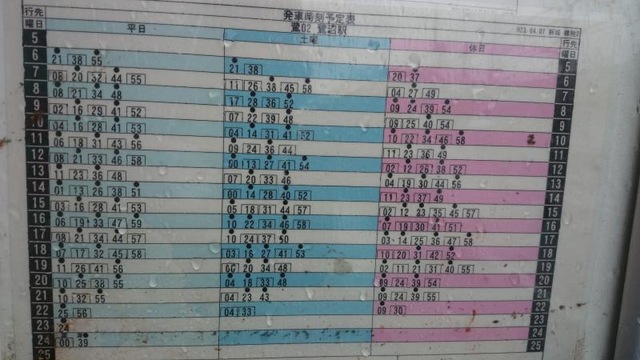 行先 発車時刻予定表 行先
曜日 平日 土曜 休日 曜日
5 5
6 21 38 55 21 38 20 37 6
7 08 20 32 44 55 11 26 38 45 58 04 27 49 7
8 08 21 34 48 17 28 36 52 09 24 39 54 8
9 02 16 29 41 52 07 22 39 48 09 25 40 54 9
10 04 16 28 41 53 04 14 31 41 52 10 22 34 46 58 10
11 06 18 31 43 56 09 24 38 44 11 23 36 49 11
12 08 21 33 46 58 00 13 27 41 54 02 12 26 38 52 12
13 11 23 36 48 07 20 33 46 04 19 30 44 56 13
14 01 13 26 38 51 00 14 28 40 52 11 23 37 49 14
15 03 16 28 41 53 05 18 31 44 57 02 12 23 35 45 57 15
16 06 19 33 47 59 10 22 34 46 58 07 19 30 41 51 16
17 08 21 34 44 57 10 24 37 50 03 14 25 36 47 58 17
18 07 17 32 45 58 03 16 27 41 53 10 20 31 42 52 18
19 11 26 41 56 06 20 34 48 02 11 21 31 40 55 19
20 10 25 38 55 04 18 33 48 09 24 39 54 20
21 10 32 55 04 23 43 09 24 39 55 21
22 25 56 04 33 09 30 22
23 24 23
24 00 39 24
25 25